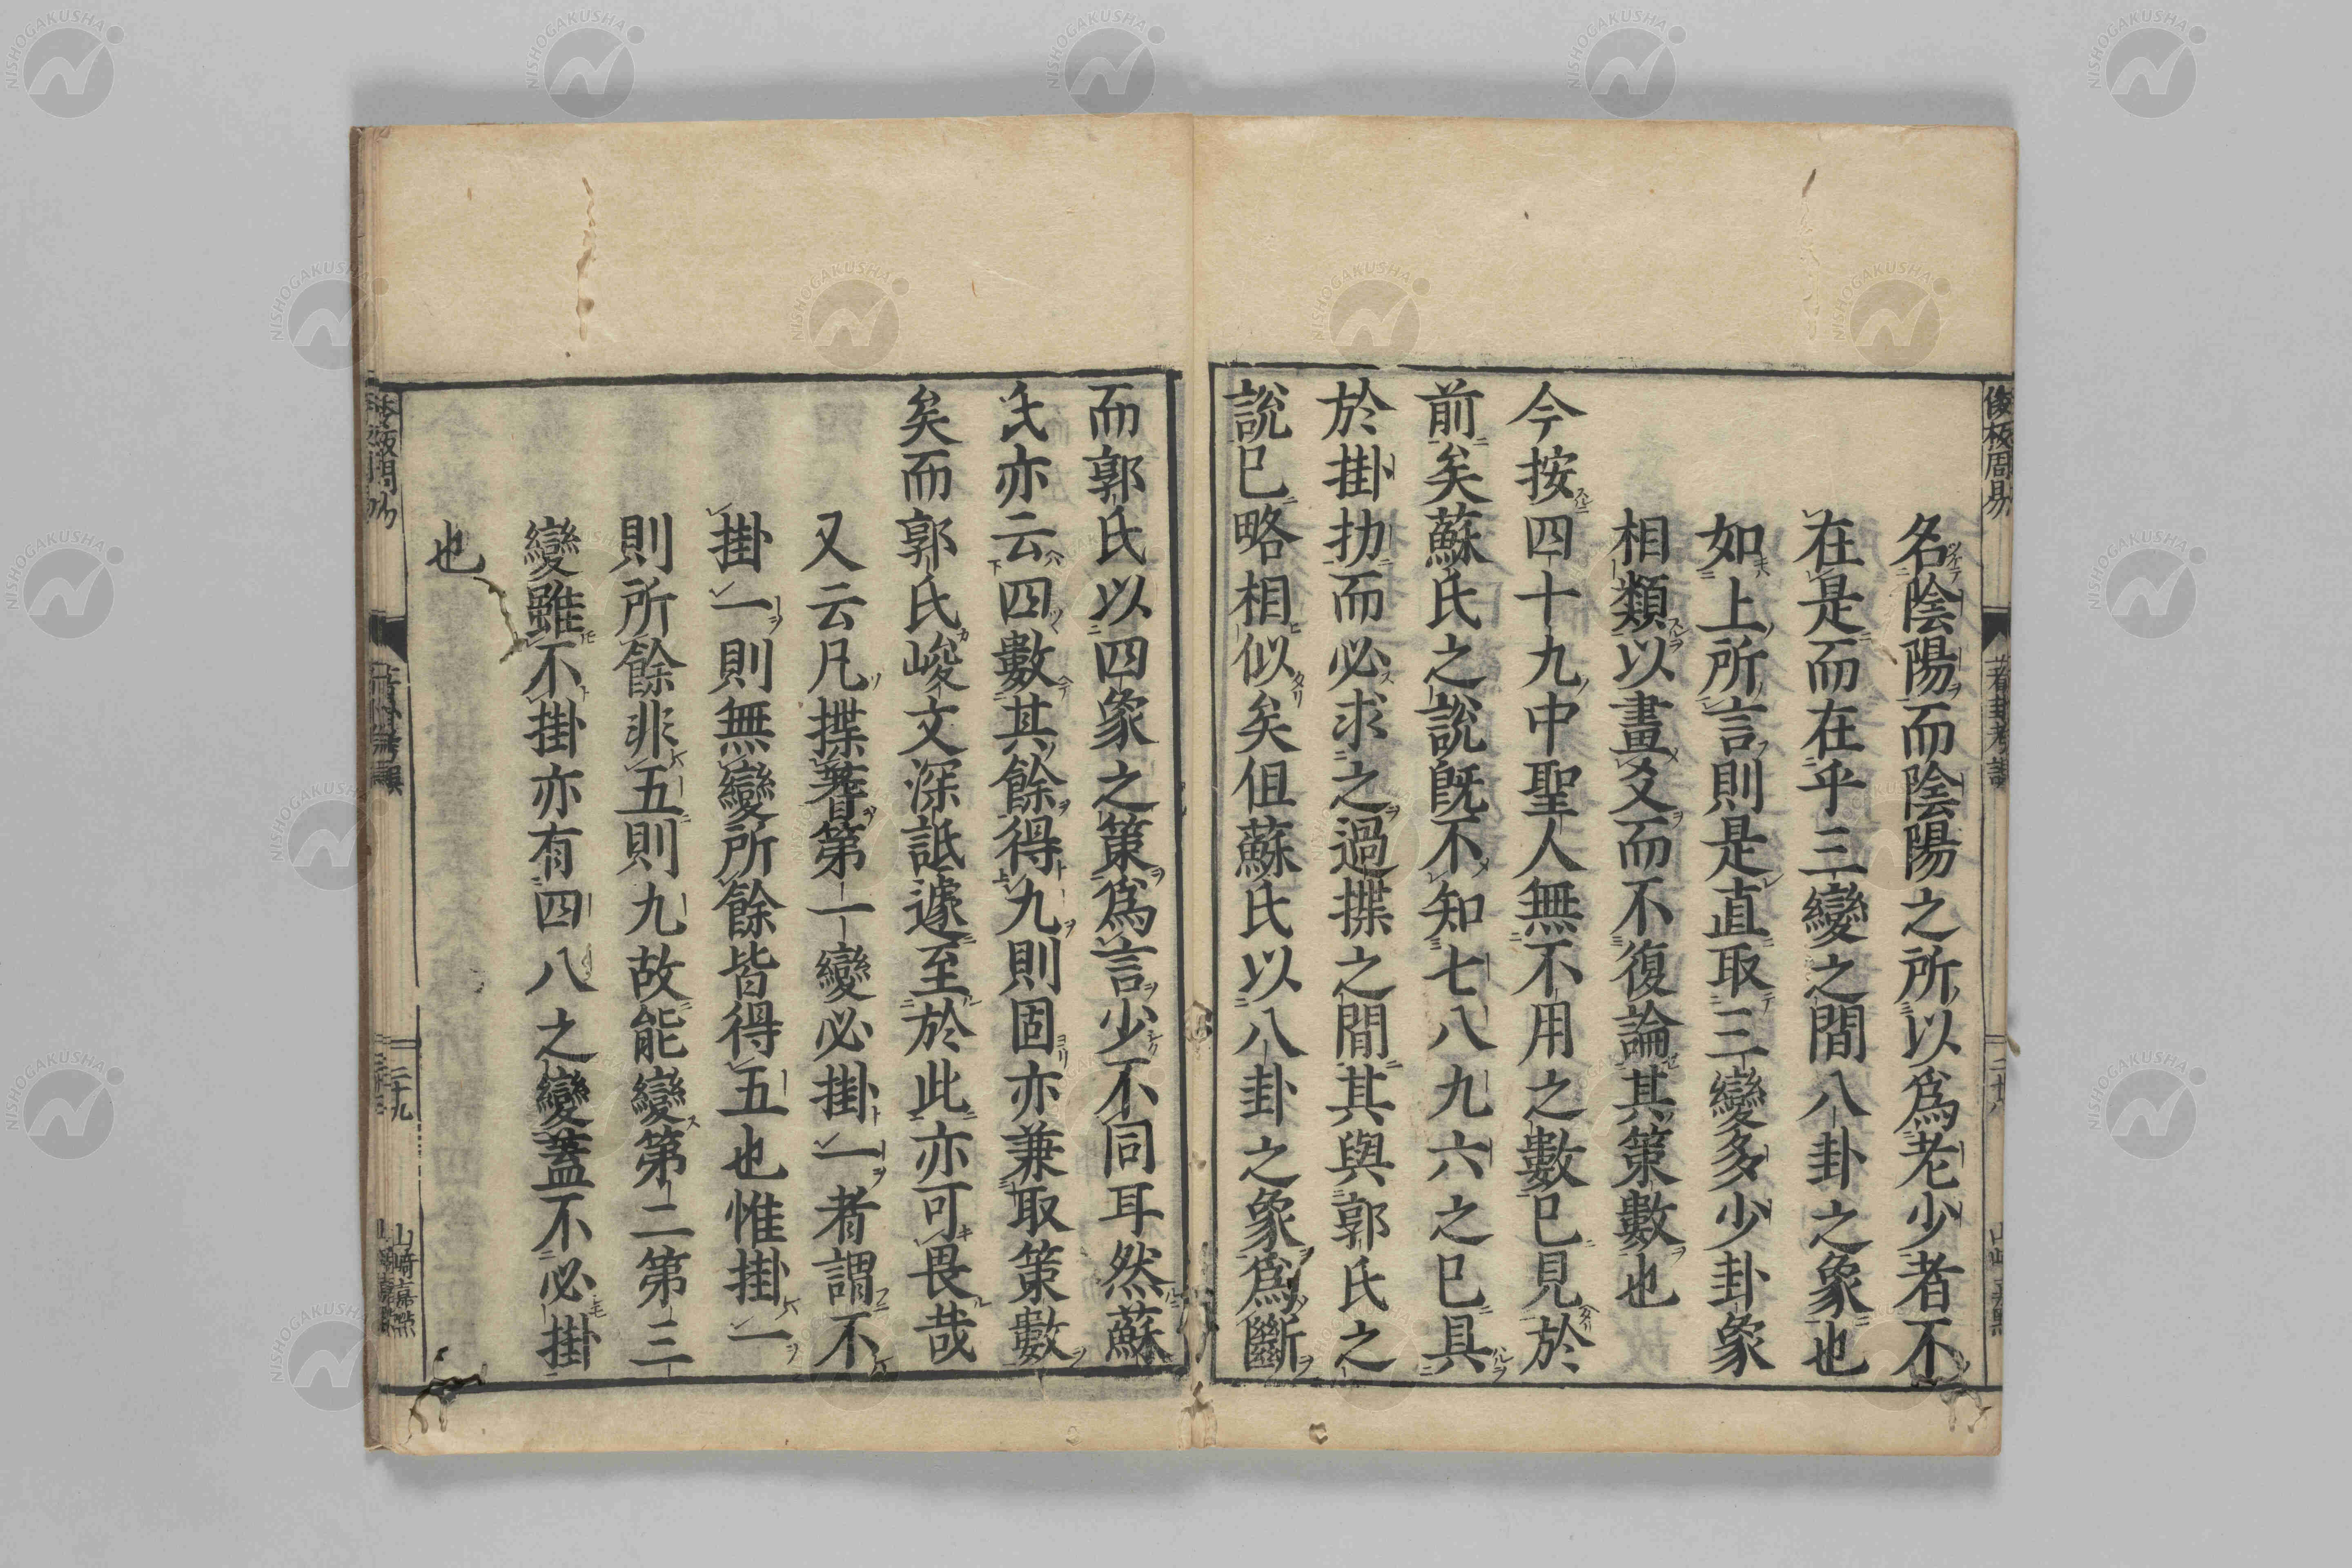 名陰陽而陰陽之所以爲老少者不
在是而在乎三變之間八卦之象也
如上所言則是直取三變多少卦象
相類以畫爻而不復論其策數也
今按四十九中聖人無不用之數已見於
前矣蘇氏之說既不知七八九六之已具
於掛扐而必求之過揲之間其與郭氏之
說已略相似矣但蘇氏以八卦之象爲斷
而郭氏以四象之策爲言少不同耳然蘇
氏亦云四數其餘得九則固亦兼取策數
矣而郭氏峻文深詆遽至於此亦可畏哉
又云凡揲蓍第一變必掛一者謂不
掛一則無變所餘皆得五也惟掛一
則所餘非五則九故能變第二第三
變雖不掛亦有四八之變蓋不必掛
也
二十九
山崎嘉點
NISHOGAKUSHA